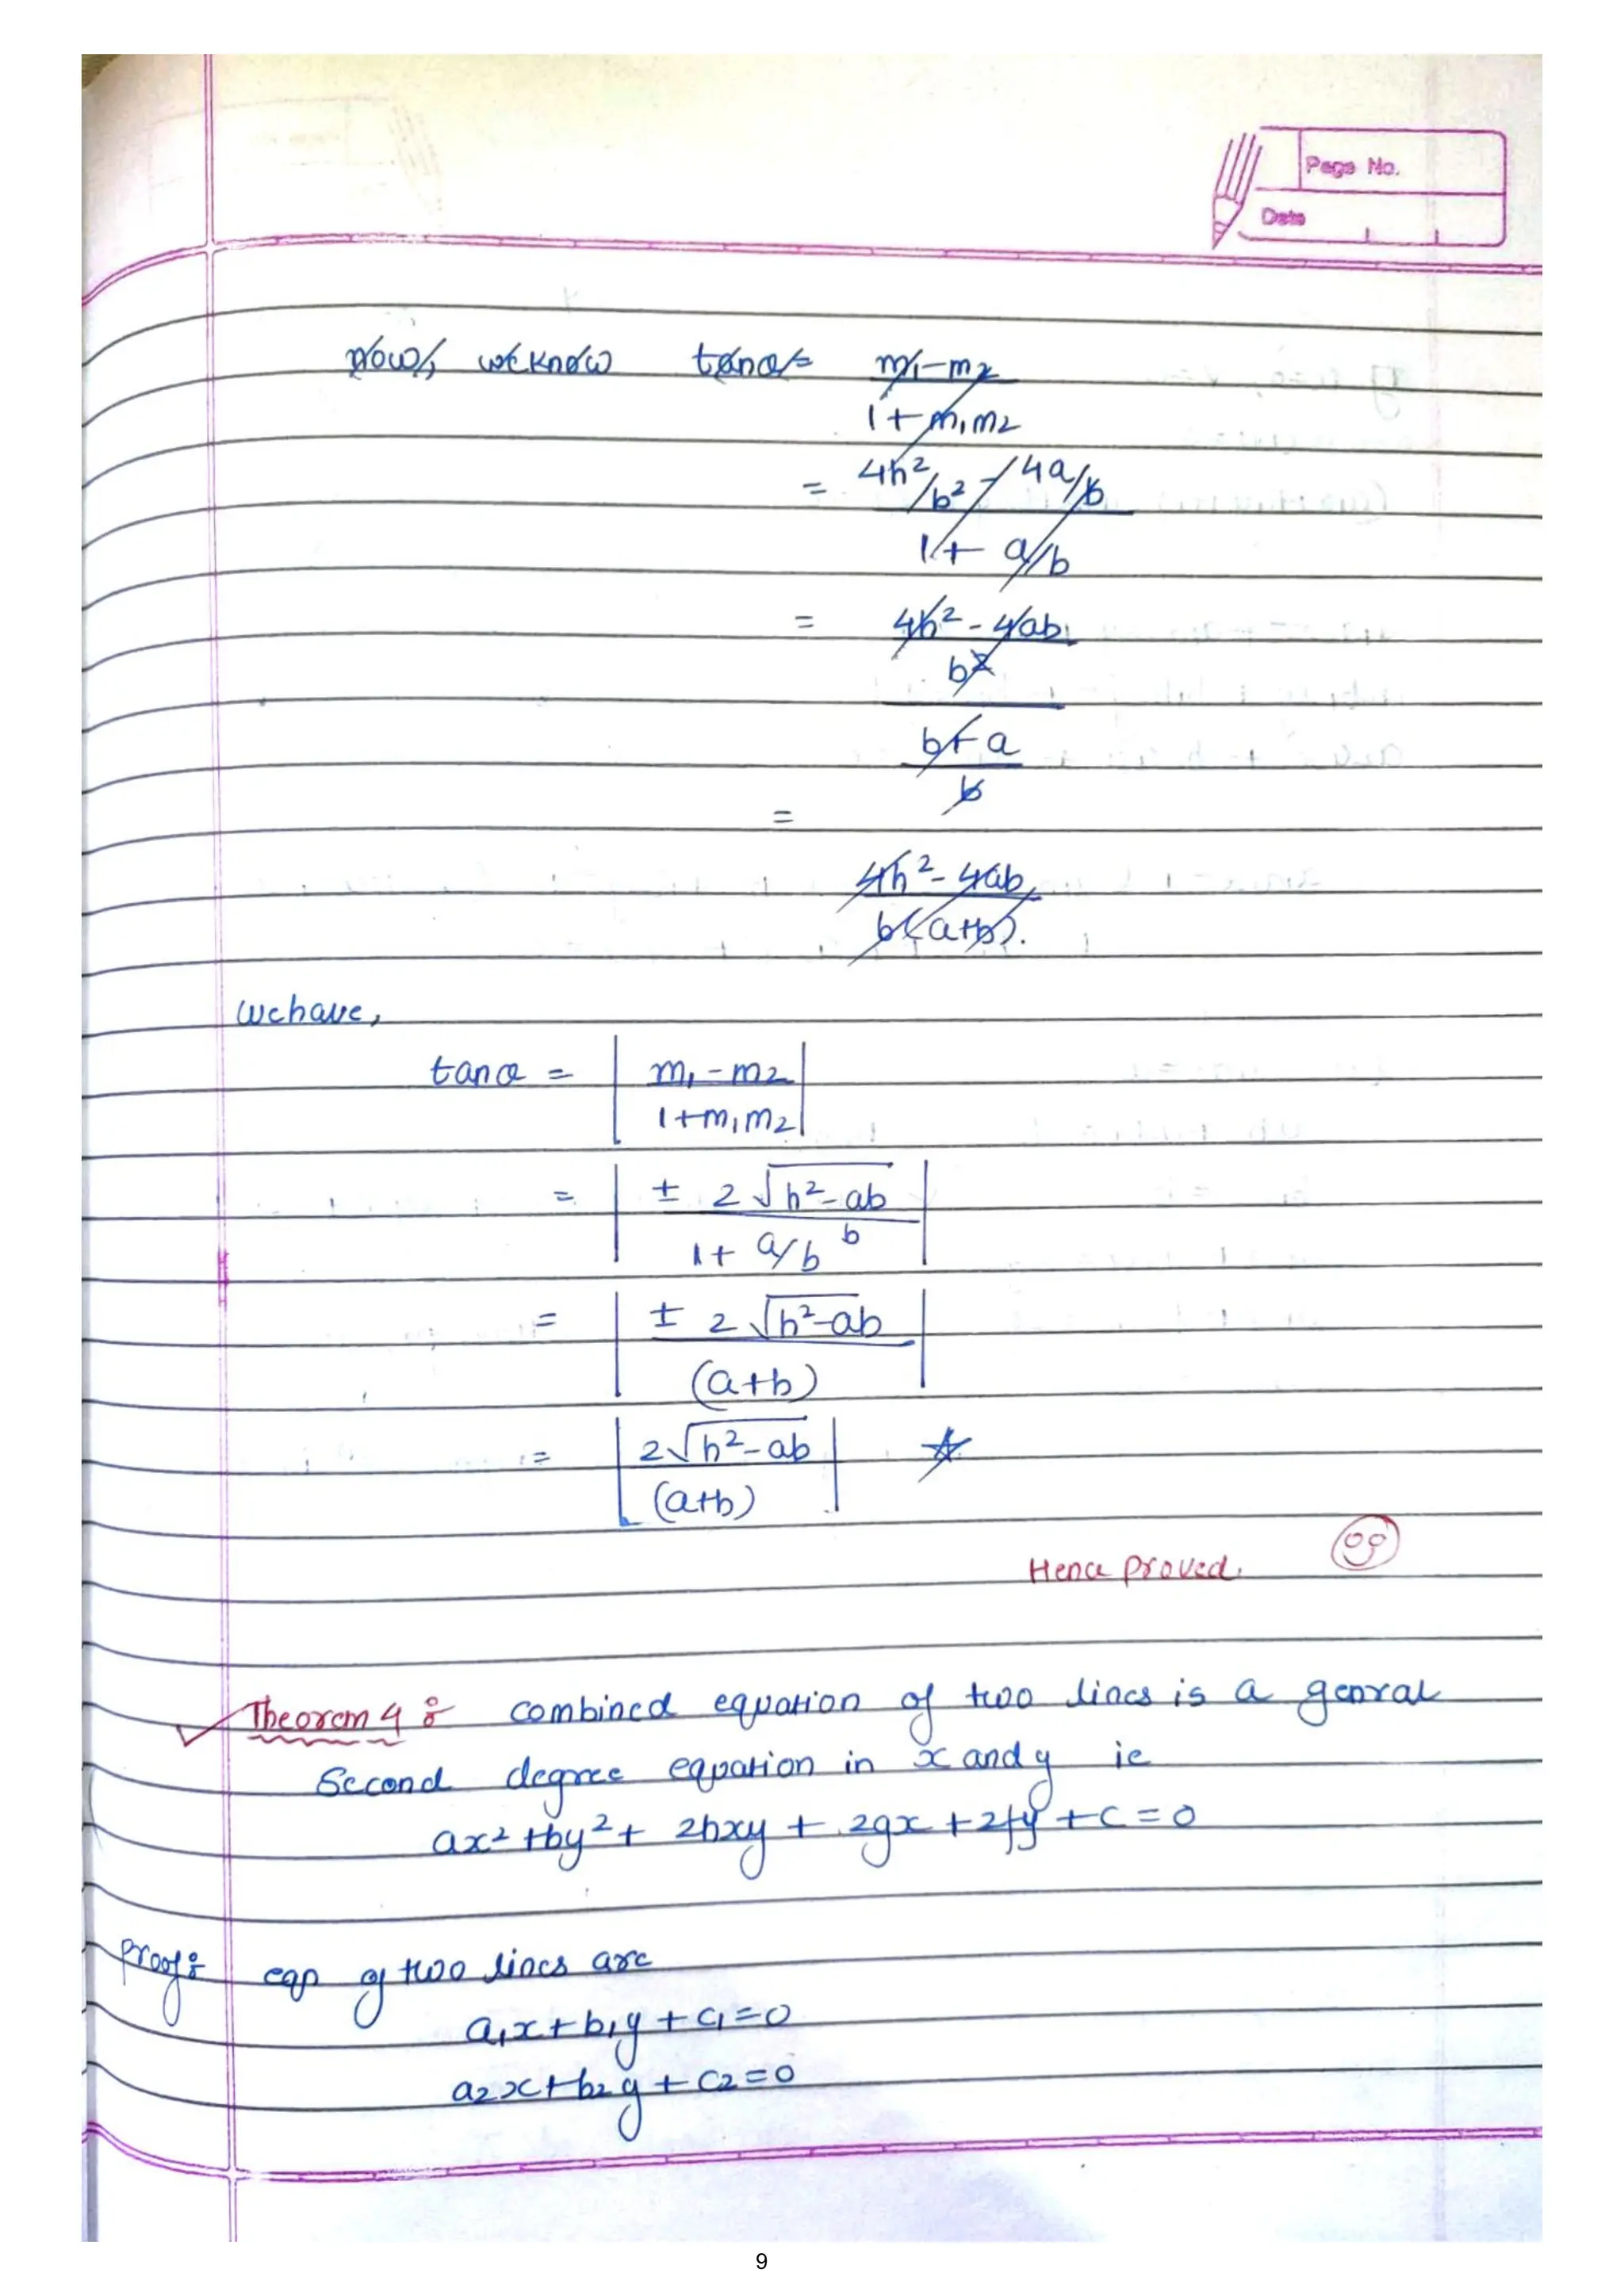 Page No.
Date
now, weknow tanα= m₁-m₂
1+m₁m₂
= 4h²/b² - 4a/b
1+ a/b
= 4h² - 4ab
b²
b+a
b
=
4h² - 4ab
b(a+b).
wehave,
tanα = | m₁-m₂ |
1+m₁m₂
= | ± 2√h²-ab |
1+ a/b b
= | ± 2√h²-ab |
(a+b)
= | 2√h²-ab | ☆
(a+b)
Hence proved.
Theorem 4 : combined equation of two lines is a genral
Second degree equation in x and y ie
ax²+by²+ 2hxy + 2gx +2fy +c = 0
Proof: eqn of two lines are
a₁x+b₁y+c₁=0
a₂x+b₂y+c₂=0
9